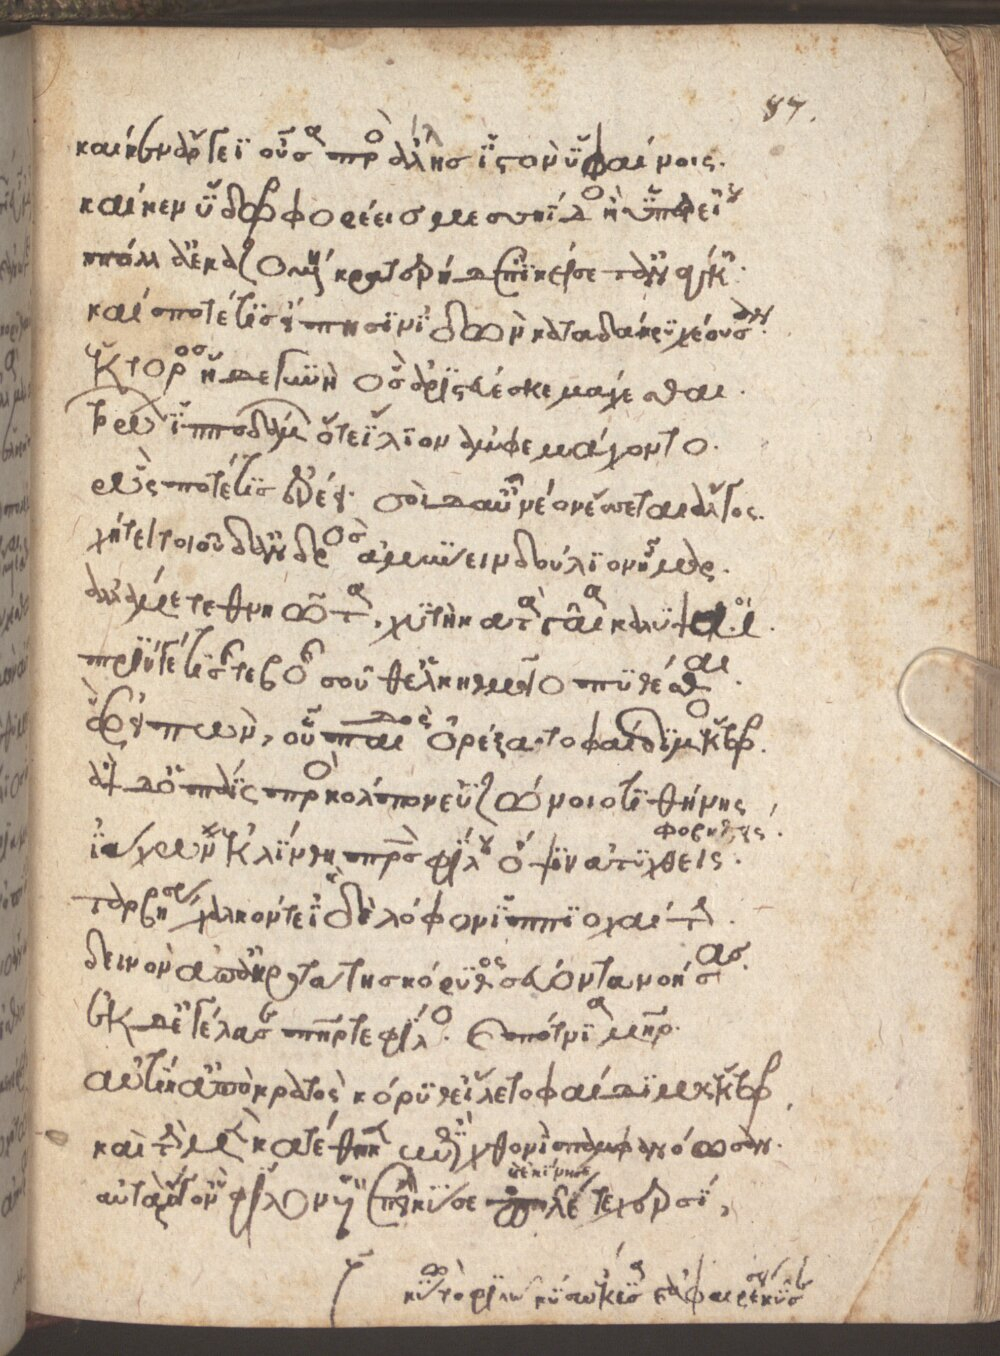 καί κεν ἐν ἄργει οὖσα πρὸς ἄλλης ἱστὸν ὑφαίνοις.
καί κεν ὕδωρ φορέεις μεσσηΐδος ἢ ὑπερείης
πόλλ' ἀεκαζομένη κρατερὴ δ' ἐπικείσετ' ἀνάγκη·
καί ποτέ τις εἴπησιν ἰδὼν κατὰ δάκρυ χέουσαν.
ἕκτορος ἥδε γυνὴ ὃς ἀριστεύεσκε μάχεσθαι.
τρώων ἱπποδάμων ὅτε ἴλιον ἀμφεμάχοντο.
ὥς ποτέ τις ἐρέει· σοὶ δ' αὖ νέον ἔσσεται ἄλγος.
χήτεϊ τοιοῦδ' ἀνδρὸς ἀμύνειν δούλιον ἦμαρ.
ἀλλά με τεθνηῶτα, χυτὴ κατὰ γαῖα καλύπτοι.
πρίν γέ τι σῆς τε βοῆς σοῦ θ' ἑλκηθμοῖο πυθέσθαι.
ὣς εἰπὼν, οὗ παιδὸς ὀρέξατο φαίδιμος ἕκτωρ.
ἂψ δ' ὁ πάϊς πρὸς κόλπον εὐζώνοιο τιθήνης
ἰάχων ἐκλίνθη πατρὸς φίλου ὄψιν ἀτυχθείς.
ταρβήσας χαλκόν τε ἰδὲ λόφον ἱππιοχαίτην.
δεινὸν ἀπ' ἀκροτάτης κόρυθος νεύοντα νοήσας.
ἐκ δ' ἐγέλασσε πατήρ τε φίλος· καὶ πότνια μήτηρ.
αὐτίκ' ἀπὸ κρατὸς κόρυθ' εἵλετο φαίδιμος ἕκτωρ.
καὶ τὴν μὲν κατέθηκεν ἐπὶ χθονὶ παμφανόωσαν.
αὐτὰρ ὅγ' ὃν φίλον υἱὸν ἐπεὶ κύσε πῆλέ τε χερσί,